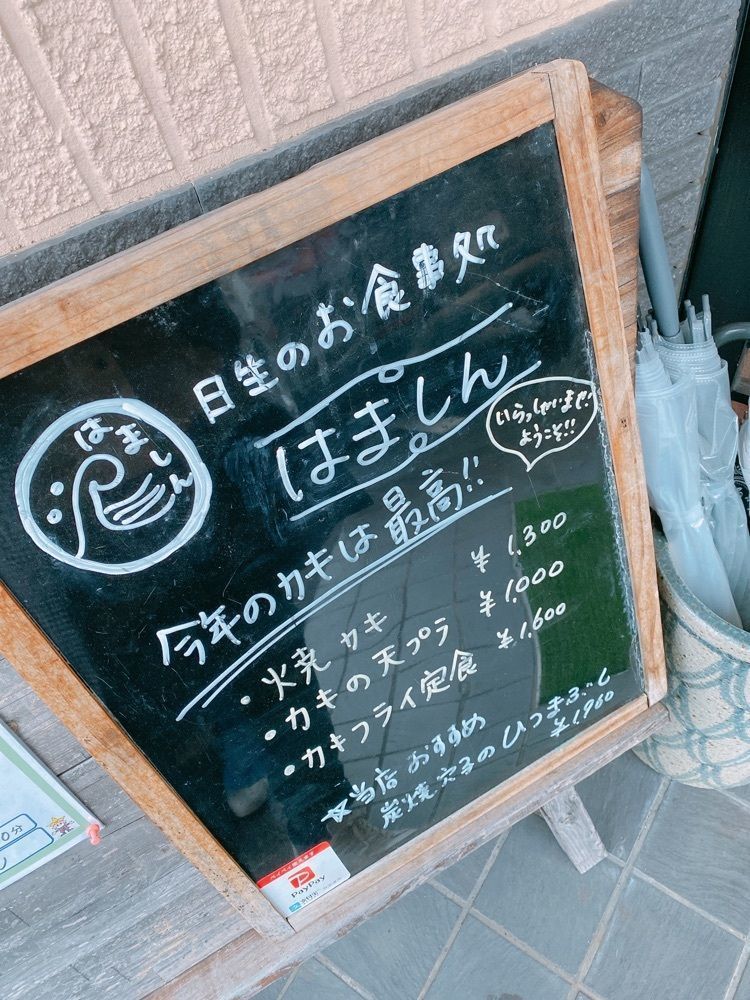 日生のお食事処
はましん
はましん
いらっしゃいませ
ようこそ!!
今年のカキは最高!!
・焼カキ ¥1,300
・カキの天プラ ¥1,000
・カキフライ定食 ¥1,600
☆当店おすすめ
炭焼穴子のひつまぶし
¥1,960
PayPay
0分